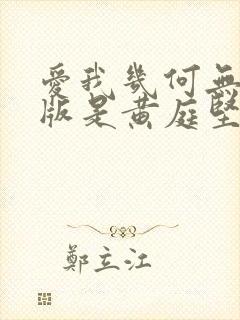 愛我幾何無
版是黄庭堅
鄭立江